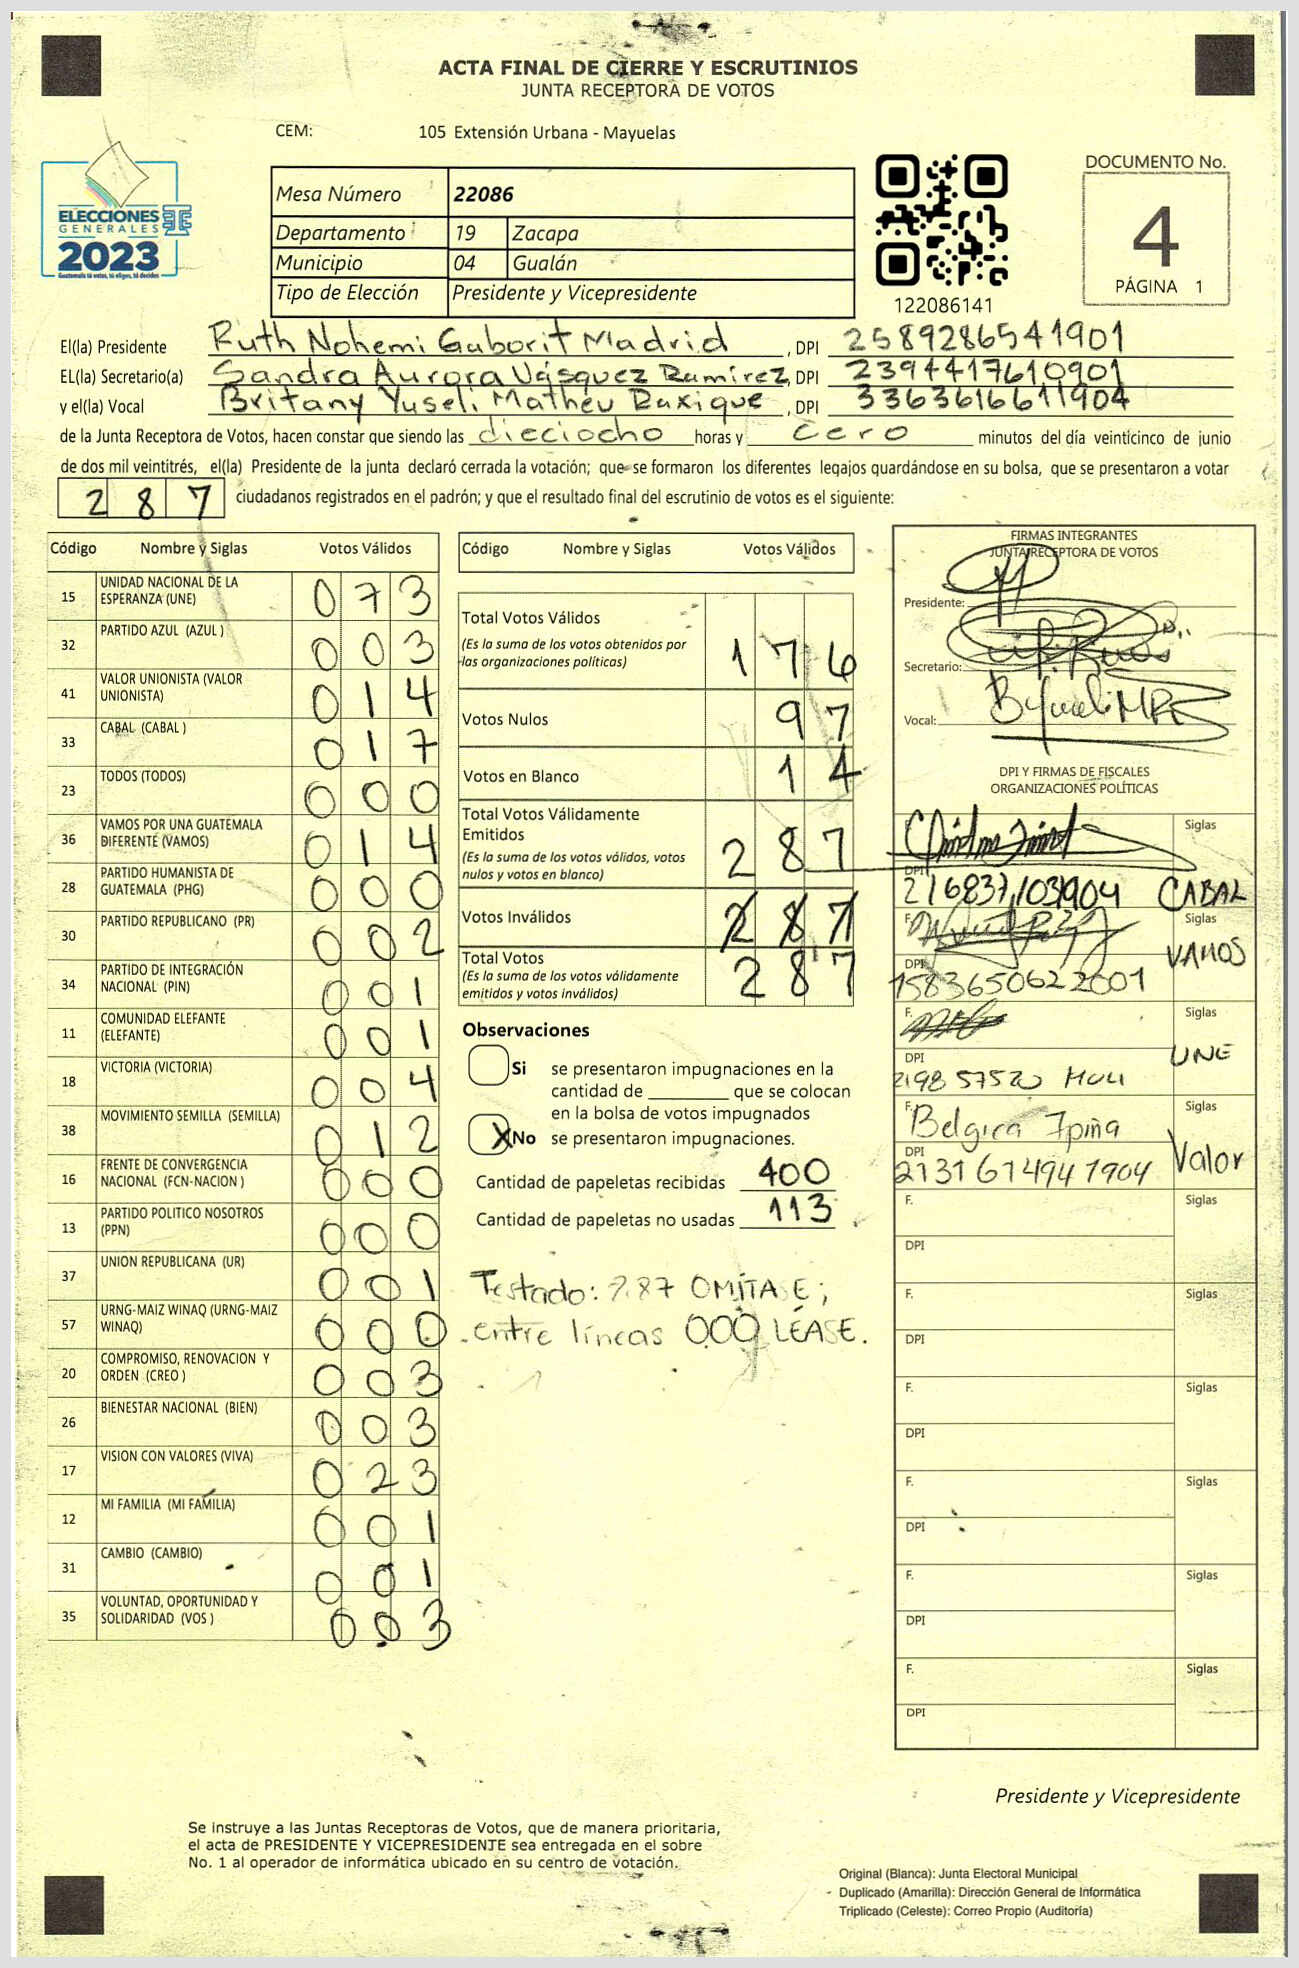 ACTA FINAL DE CIERRE Y ESCRUTINIOS
JUNTA RECEPTORA DE VOTOS
CEM: 105 Extensión Urbana - Mayuelas
ELECCIONES
GENERALES
2023
Guatemala tú votas, tú eliges, tú decides
Mesa Número 22086
Departamento 19 Zacapa
Municipio 04 Gualán
Tipo de Elección Presidente y Vicepresidente
122086141
DOCUMENTO No.
4
PÁGINA 1
El(la) Presidente Ruth Nohemi Gaborit Madrid, DPI 2589286541901
EL(la) Secretario(a) Sandra Aurora Vásquez Ramirez, DPI 2394417610901
y el(la) Vocal Britany Yuseli Matheu Raxique, DPI 3363616611904
de la Junta Receptora de Votos, hacen constar que siendo las dieciocho horas y cero minutos del día veinticinco de junio
de dos mil veintitrés, el(la) Presidente de la junta declaró cerrada la votación; que se formaron los diferentes legajos quardándose en su bolsa, que se presentaron a votar
287 ciudadanos registrados en el padrón; y que el resultado final del escrutinio de votos es el siguiente:
Código Nombre y Siglas Votos Válidos
15 UNIDAD NACIONAL DE LA ESPERANZA (UNE) 073
32 PARTIDO AZUL (AZUL ) 003
41 VALOR UNIONISTA (VALOR UNIONISTA) 014
33 CABAL (CABAL ) 017
23 TODOS (TODOS) 000
36 VAMOS POR UNA GUATEMALA DIFERENTE (VAMOS) 014
28 PARTIDO HUMANISTA DE GUATEMALA (PHG) 000
30 PARTIDO REPUBLICANO (PR) 002
34 PARTIDO DE INTEGRACIÓN NACIONAL (PIN) 001
11 COMUNIDAD ELEFANTE (ELEFANTE) 001
18 VICTORIA (VICTORIA) 004
38 MOVIMIENTO SEMILLA (SEMILLA) 012
16 FRENTE DE CONVERGENCIA NACIONAL (FCN-NACION ) 000
13 PARTIDO POLITICO NOSOTROS (PPN) 000
37 UNION REPUBLICANA (UR) 001
57 URNG-MAIZ WINAQ (URNG-MAIZ WINAQ) 000
20 COMPROMISO, RENOVACION Y ORDEN (CREO ) 003
26 BIENESTAR NACIONAL (BIEN) 003
17 VISION CON VALORES (VIVA) 023
12 MI FAMILIA (MI FAMILIA) 001
31 CAMBIO (CAMBIO) 001
35 VOLUNTAD, OPORTUNIDAD Y SOLIDARIDAD (VOS ) 003
Código Nombre y Siglas Votos Válidos
Total Votos Válidos 176
(Es la suma de los votos obtenidos por
las organizaciones políticas)
Votos Nulos 97
Votos en Blanco 14
Total Votos Válidamente
Emitidos 287
(Es la suma de los votos válidos, votos
nulos y votos en blanco)
Votos Inválidos 287
Total Votos 287
(Es la suma de los votos válidamente
emitidos y votos inválidos)
Observaciones
Si se presentaron impugnaciones en la
cantidad de ________ que se colocan
en la bolsa de votos impugnados
X No se presentaron impugnaciones.
Cantidad de papeletas recibidas 400
Cantidad de papeletas no usadas 113
Testado: 287 OMÍTASE;
entre líneas 000 LÉASE.
FIRMAS INTEGRANTES
JUNTA RECEPTORA DE VOTOS
Presidente:
Secretario:
Vocal:
DPI Y FIRMAS DE FISCALES
ORGANIZACIONES POLÍTICAS
Siglas
DPI
CABAL
F. Siglas
VAMOS
DPI
1583650622001
F. Siglas
UNE
DPI
F. Belgica Ipiña Siglas
DPI Valor
2131614941904
F. Siglas
DPI
F. Siglas
DPI
F. Siglas
DPI
F. Siglas
DPI
F. Siglas
DPI
F. Siglas
DPI
Presidente y Vicepresidente
Se instruye a las Juntas Receptoras de Votos, que de manera prioritaria,
el acta de PRESIDENTE Y VICEPRESIDENTE sea entregada en el sobre
No. 1 al operador de informática ubicado en su centro de votación.
Original (Blanca): Junta Electoral Municipal
Duplicado (Amarilla): Dirección General de Informática
Triplicado (Celeste): Correo Propio (Auditoría)